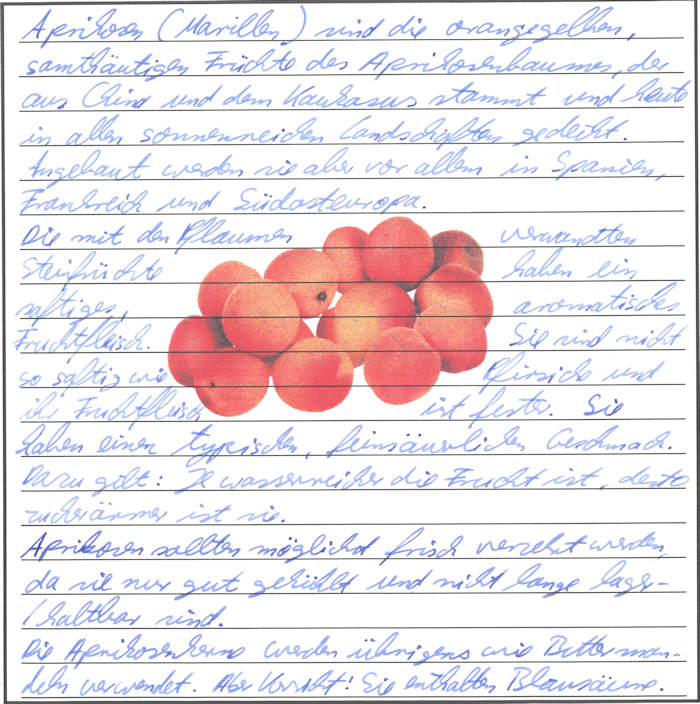 Aprikosen (Marillen) sind die orangegelben,
samthäutigen Früchte des Aprikosenbaumes, der
aus China und dem Kaukasus stammt und heute
in allen sonnenreichen Landschaften gedeiht.
Angebaut werden sie aber vor allem in Spanien,
Frankreich und Südosteuropa.
Die mit den Pflaumen verwandten
Steinfrüchte haben ein
saftiges, aromatisches
Fruchtfleisch. Sie sind nicht
so saftig wie Pfirsiche und
ihr Fruchtfleisch ist fester. Sie
haben einen typischen, feinsäuerlichen Geschmack.
Dazu gilt: Je wasserreicher die Frucht ist, desto
zuckerärmer ist sie.
Aprikosen sollten möglichst frisch verzehrt werden,
da sie nur gut gekühlt und nicht lange lager-
/haltbar sind.
Die Aprikosenkerne werden übrigens wie Bitterman-
deln verwendet. Aber Vorsicht! Sie enthalten Blausäure.